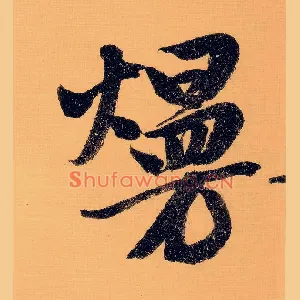 熳
Shufawang.CN